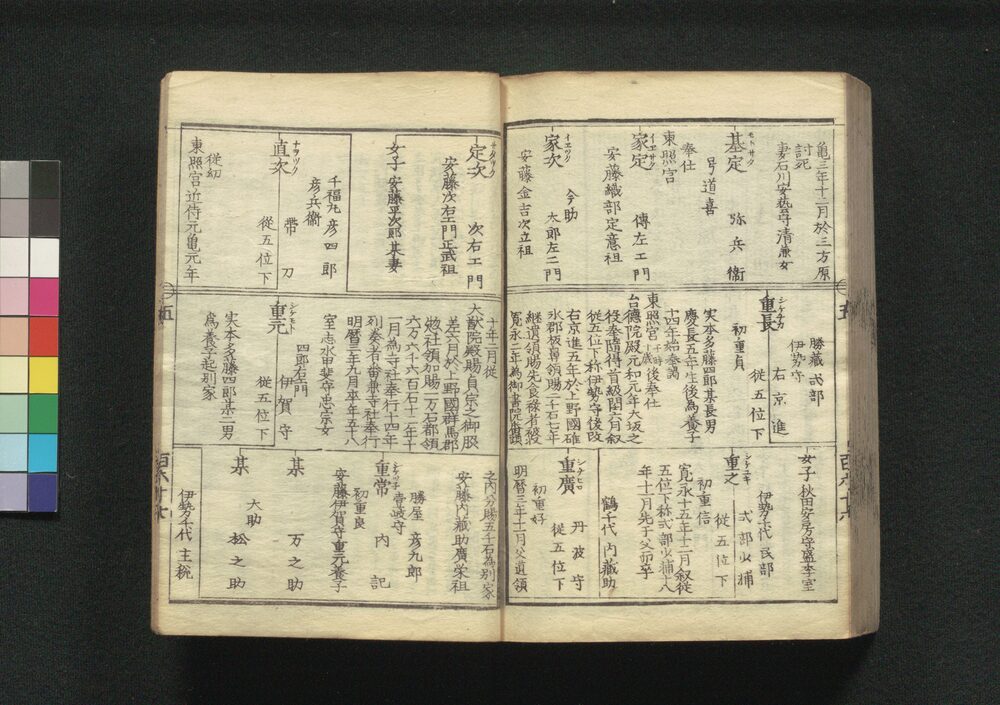 亀三年十二月於三方原
討死
妻石川安藝守清兼女
モトサダ
基定 弥兵衛
号道喜
奉仕
東照宮
イエサダ
家定 傳左エ門
安藤織部定意祖
イエツグ
家次 今助
太郎左エ門
安藤金吉次立祖
勝蔵 式部
伊勢守
シゲナガ
重長 右京進
従五位下
初重貞
実本多藤四郎某長男
慶長五年生後為養子
十四年始奉謁
東照宮 後奉仕
台徳院殿元和元年大坂之
役奉臨得首級閏六月叙
従五位下称伊勢守後改
右京進五年於上野國碓
氷郡板鼻領賜二千石七年
継遺領賜先食禄者被
寛永二年為御書院番頭
女子 秋田安房守盛季室
伊勢千代 民部
シゲユキ
重之 式部少輔
従五位下
初重信
寛永十五年十二月叙従
五位下称式部少輔十八
年十一月先于父卯卒
鶴千代 内蔵助
シゲヒロ
重廣 丹波守
従五位下
初重好
明暦三年十二月父遺領
サダツグ
定次 次右エ門
安藤次右エ門正武祖
女子 安藤平次郎某妻
千福丸 彦四郎
彦兵衛
ナヲツグ
直次 帯刀
従五位下
従幼
東照宮近侍元亀元年
十年十二月従
大猷院殿賜貞宗之御服
差六月於上野國群馬郡
六万六千六百石十二年十
一月為寺社奉行十四年
列奏者番兼寺社奉行
明暦三年九月卒年五十八
室志水甲斐守忠宗女
シゲモト
重元 伊賀守
従五位下
四郎右エ門
実本多藤四郎某二男
為養子起別家
之内分賜五千石為別家
安藤内蔵助廣栄祖
勝屋 彦九郎
壱岐守
シゲツネ
重常 内記
初重良
安藤伊賀守重元養子
某 万之助
某 松之助
大助
伊勢千代 主税
五
五
百六十六
百六十七